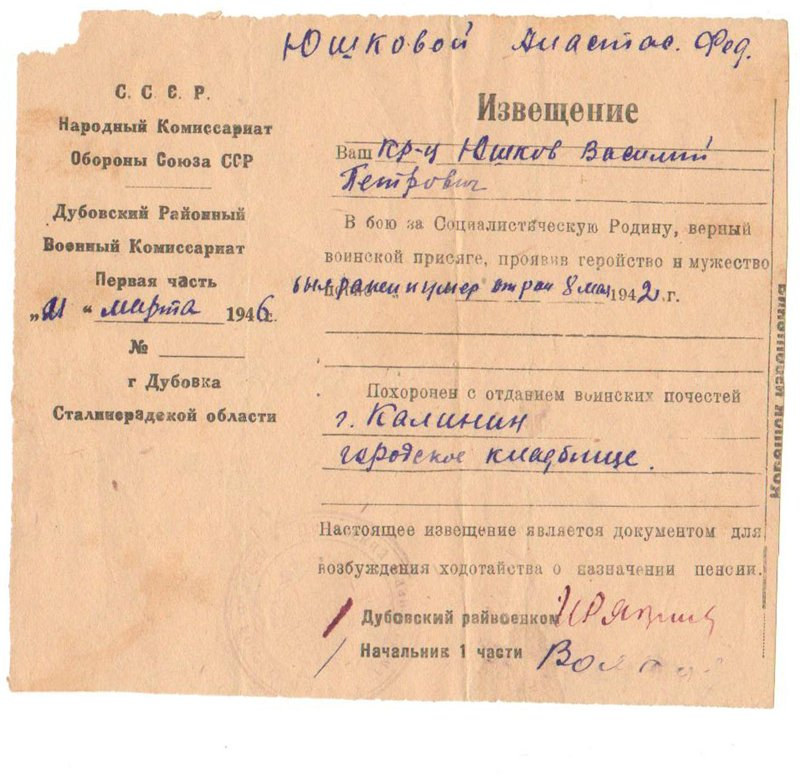 Юшковой Анастас. Фед.
С. С. С. Р.
Народный Комиссариат
Обороны Союза ССР
Дубовский Районный
Военный Комиссариат
Первая часть
„21 “ марта 1946 г.
№
г Дубовка
Сталинградской области
Извещение
Ваш кр-ц Юшков Василий
Петрович
В бою за Социалистическую Родину, верный
воинской присяге, проявив геройство и мужество
был ранен и умер от ран 8 мая 1942 г.
Похоронен с отданием воинских почестей
г. Калинин
городское кладбище.
Настоящее извещение является документом для
возбуждения ходотайства о назначении пенсии.
Дубовский райвоенком
Начальник 1 части
Корешок извещения